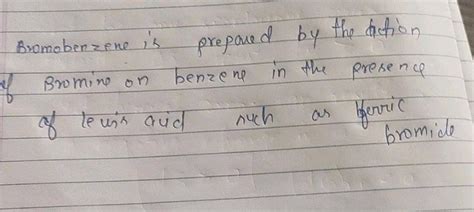 Bromobenzene is prepared by the action
of Bromine on benzene in the presence
of lewis acid such as ferric
bromide